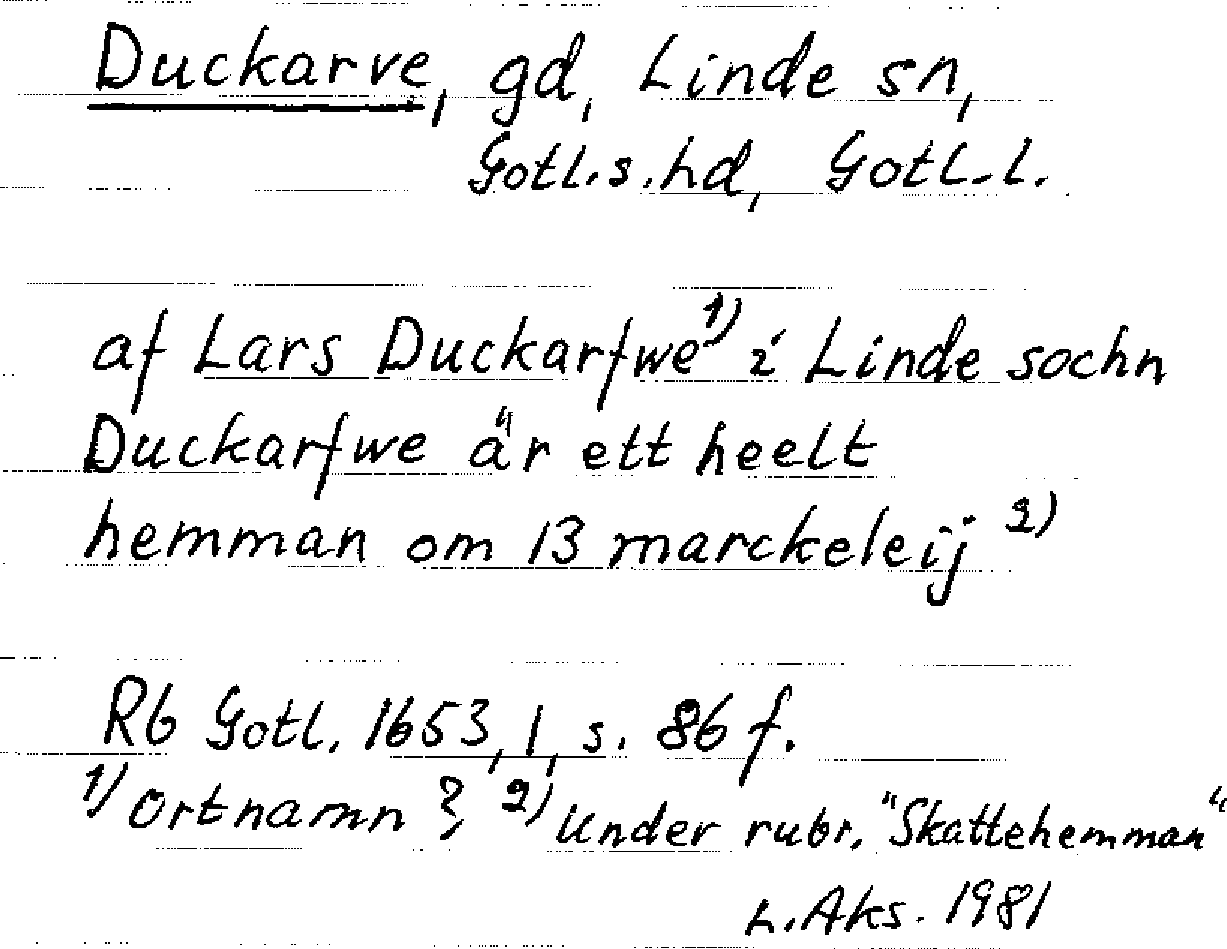 Duckarve, gd, Linde sn,
Gotl.s.hd, Gotl.l.
af Lars Duckarfwe 1) i Linde sochn
Duckarfwe är ett heelt
hemman om 13 marckeleij 2)
Rb Gotl. 1653,1, s. 86 f.
1) Ortnamn? 2) Under rubr. "Skattehemman"
L. Aks. 1981